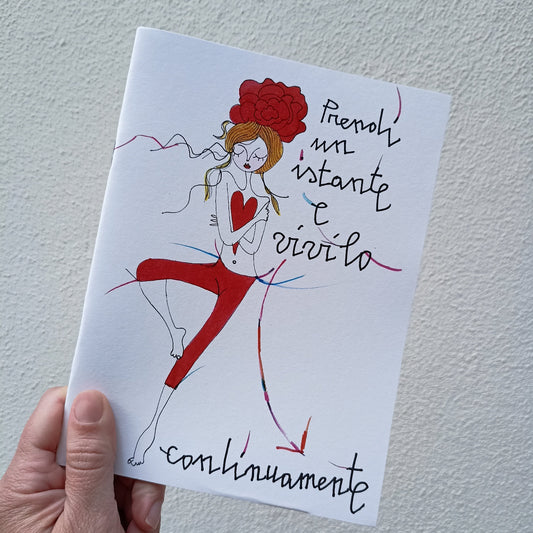 Prendi
un
istante
e
vivilo
continuamente